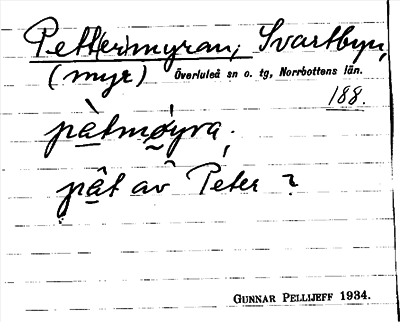 Pett(er)myran, Svartbyn,
(myr) Överluleå sn o. tg, Norrbottens län.
188.
pàtmøyra.
pât av Peter?
GUNNAR PELLIJEFF 1934.